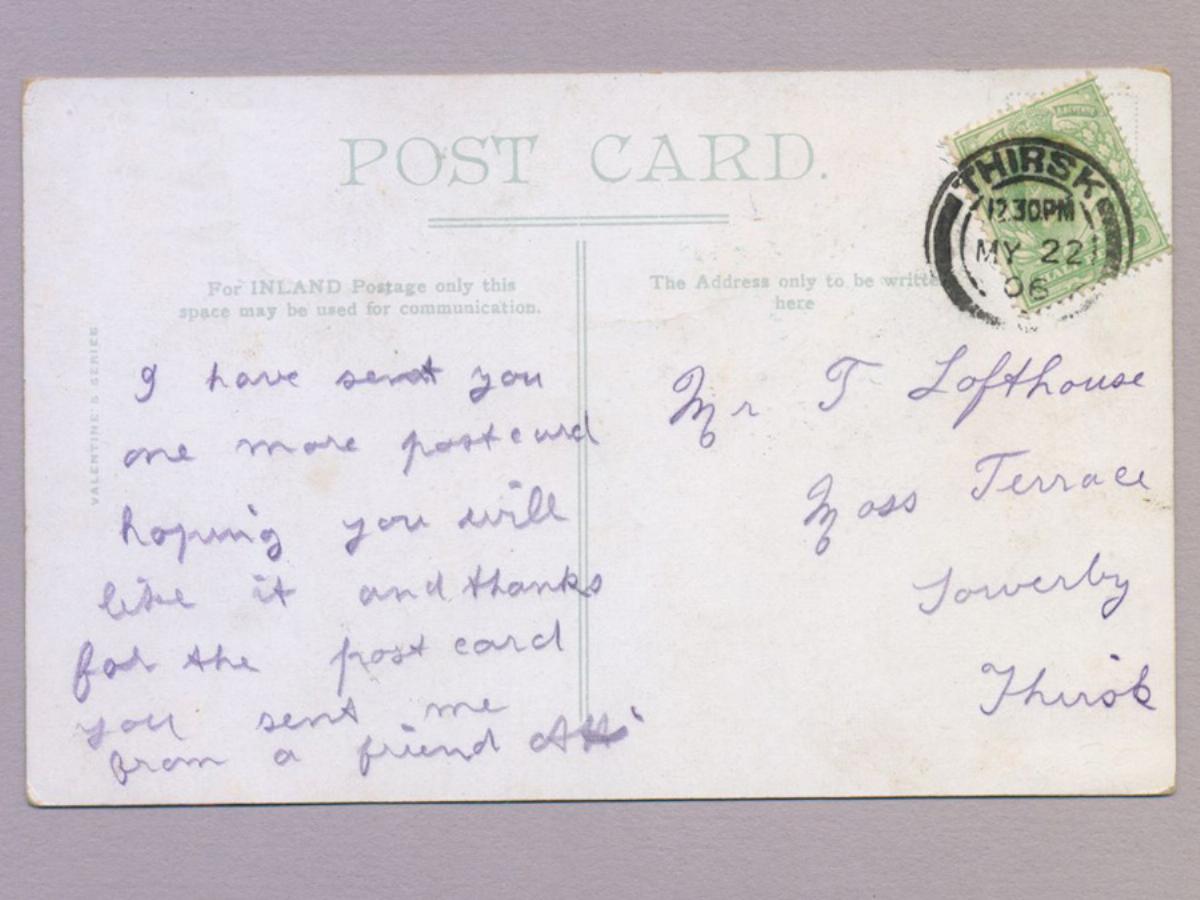 POST CARD.
For INLAND Postage only this
space may be used for communication.
The Address only to be written
here
VALENTINE'S SERIES
REVENUE
THIRSK
12.30PM
MY 22
06
I have sent you
one more postcard
hoping you will
like it and thanks
for the post card
you sent me
from a friend
Mr T Lofthouse
Moss Terrace
Sowerby
Thirsk